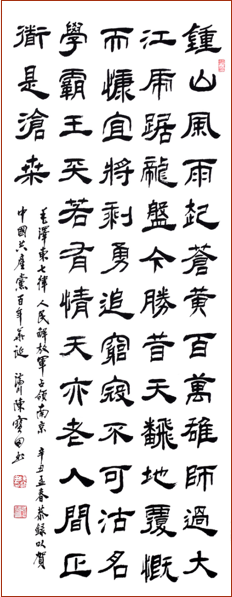 鍾山風雨起蒼黃百萬雄師過大
江虎踞龍盤今勝昔天飜地覆慨
而慷宜將剩勇追窮寇不可沽名
學霸王天若有情天亦老人間正
衜是滄桒
毛澤東七律人民解放軍占領南京 辛丑孟春恭錄以賀
中國共產黨百年華誕 陳寶